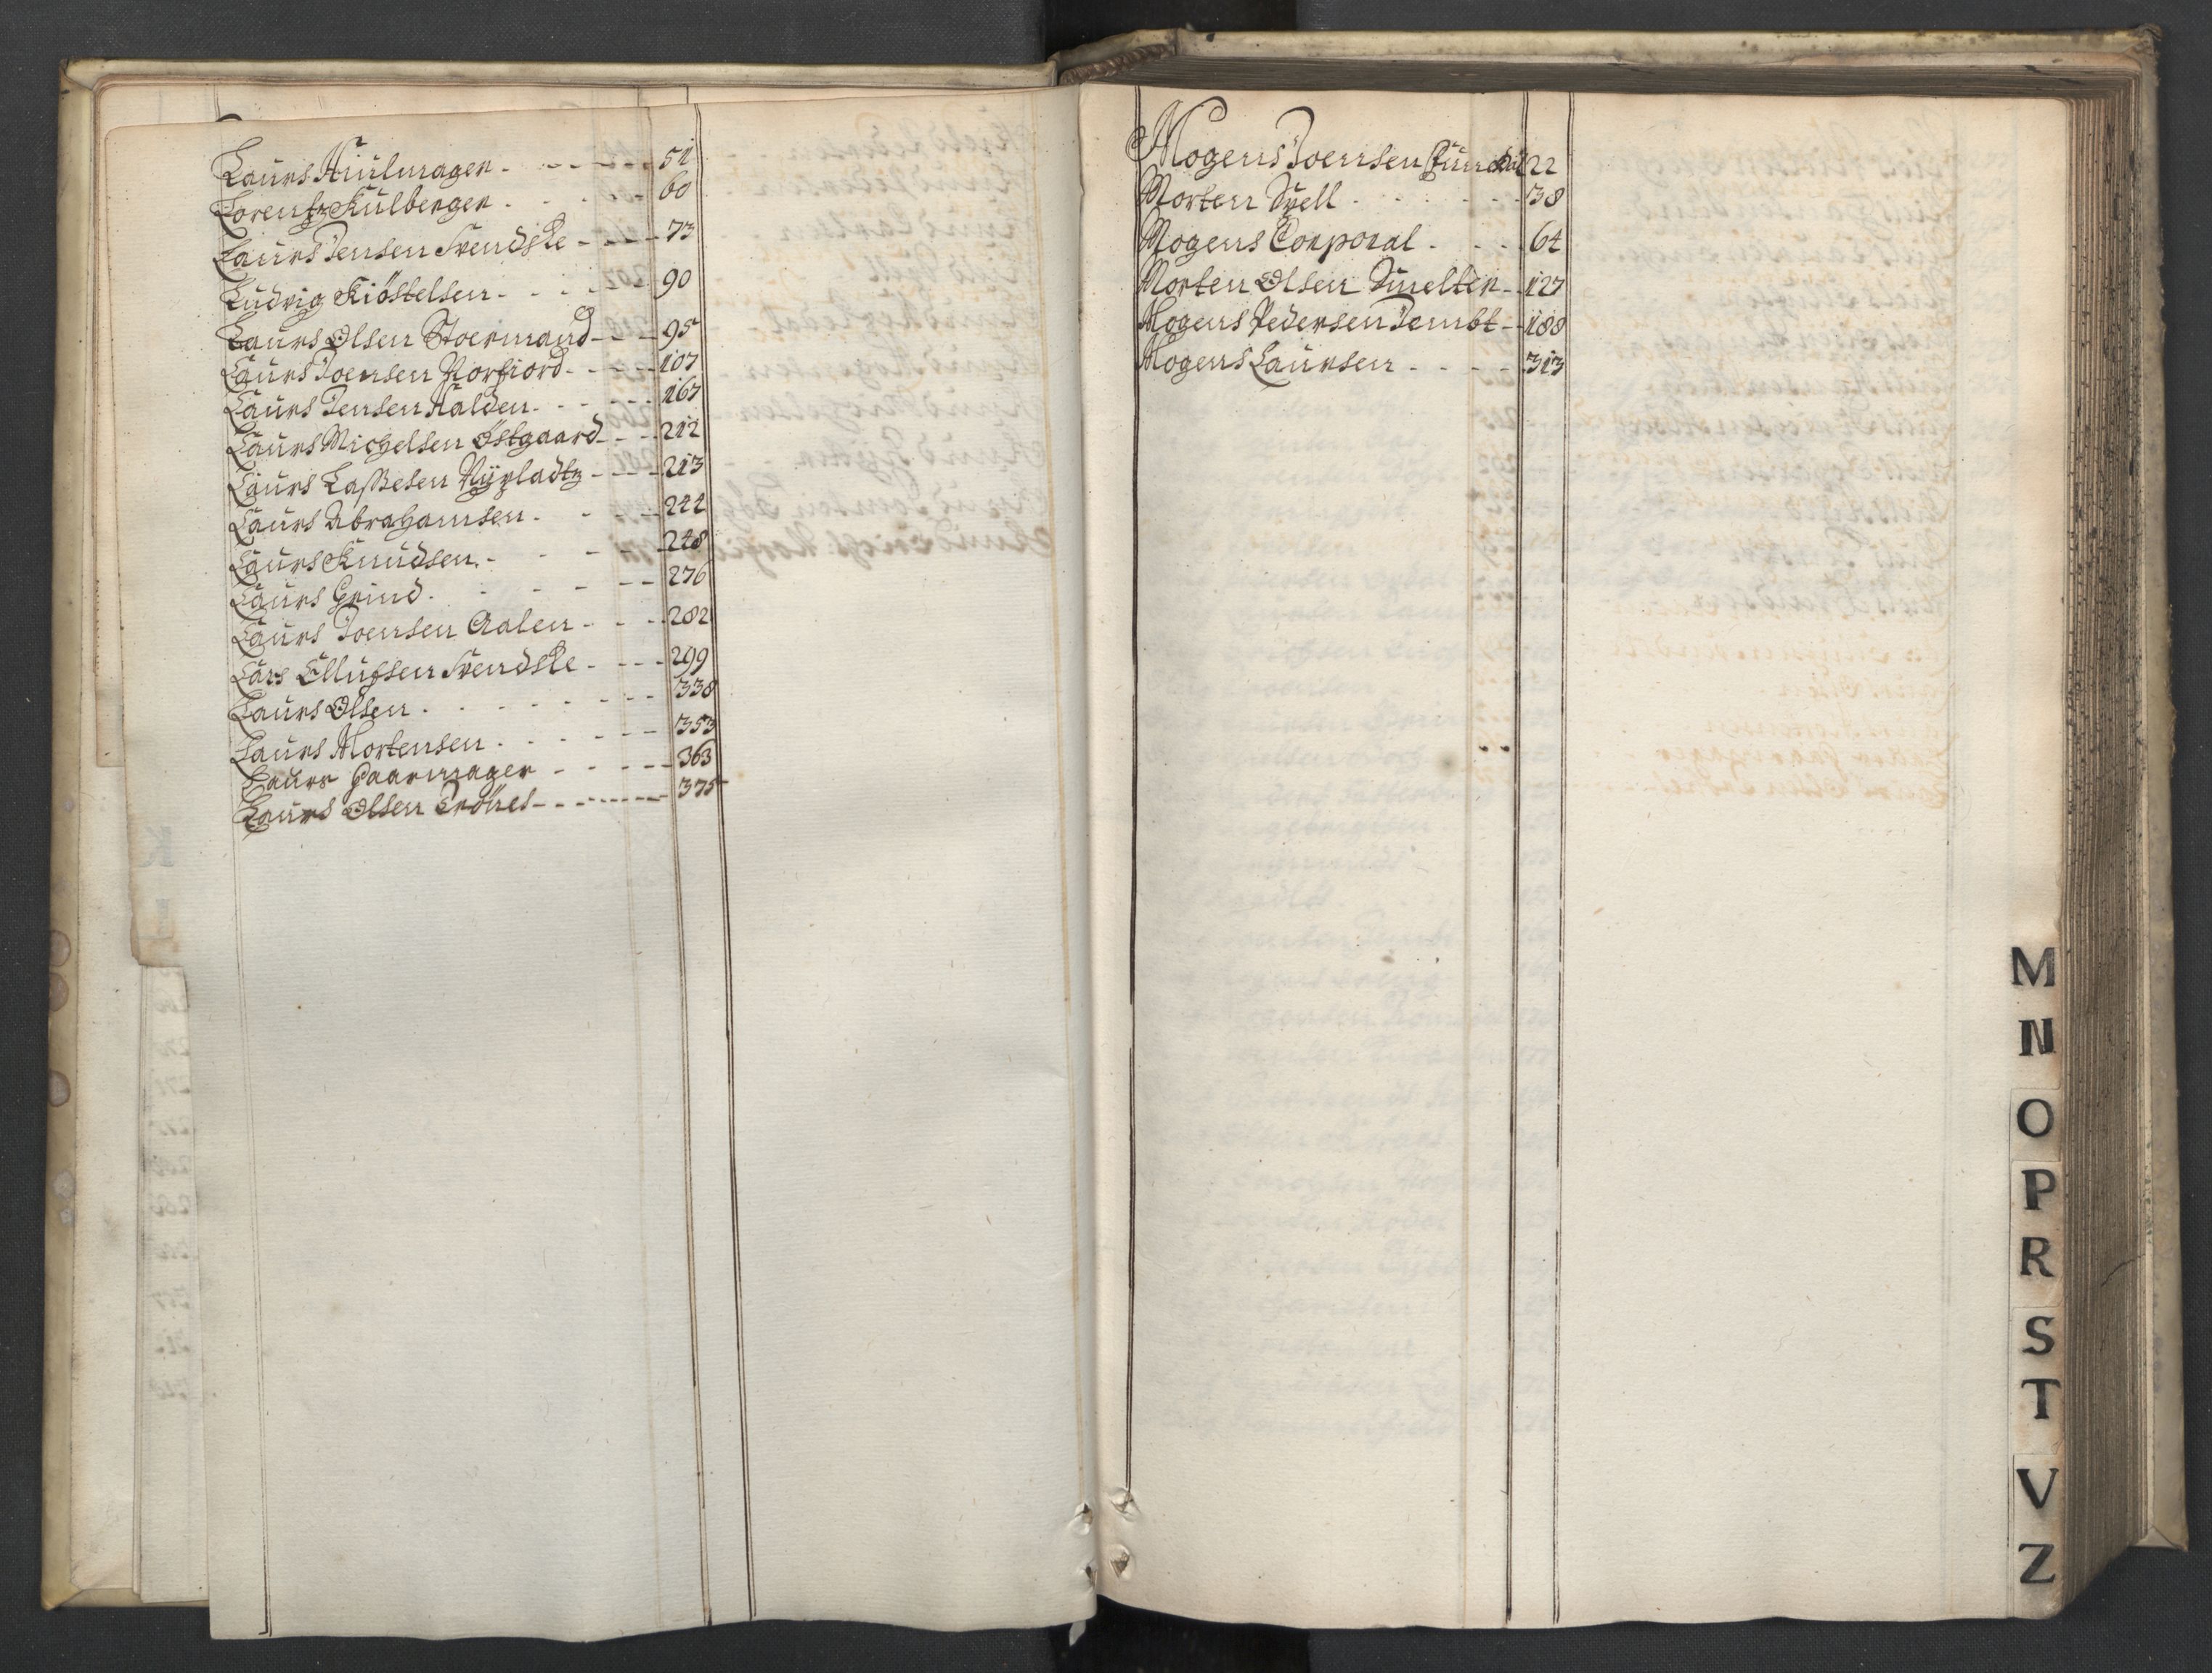 Laurs Hiulmager - - - - - 51
Lorentz Kulberger - - - - - 60
Laurs Jensen Svendske - - - - 73
Ludvig Kiöstelsen - - - - 90
Laurs Olsen Stoermand - - - 95
Laurs Joensen Norfiord - - - - 107
Laurs Jensen Aalden - - - - - 167
Laurs Michelsen Östgaard - - - 212
Laurs Lassesen Nÿpladtz - - - - 213
Laurs Abrahamsen - - - - 244
Laurs Knudsen - - - - - 248
Laurs Grind - - - - - - 276
Laurs Joensen Aalen - - - - 282
Lars Ellufsen Svendske - - - - 299
Laurs Olsen - - - - - - - 338
Laurs Mortensen - - - - - - 353
Laurs Gaarmager - - - - - 363
Laurs Olsen - - - - - - 375
Mogens Joensen 22
Morten Svell - - - - - - 38
Mogens Corporal - - - - 64
Morten Olsen Smelter - - 127
Mogens Pedersen Tembt - - 188
Mogens Laursen - - - - 313
M
N
O
P
R
S
T
V
Z